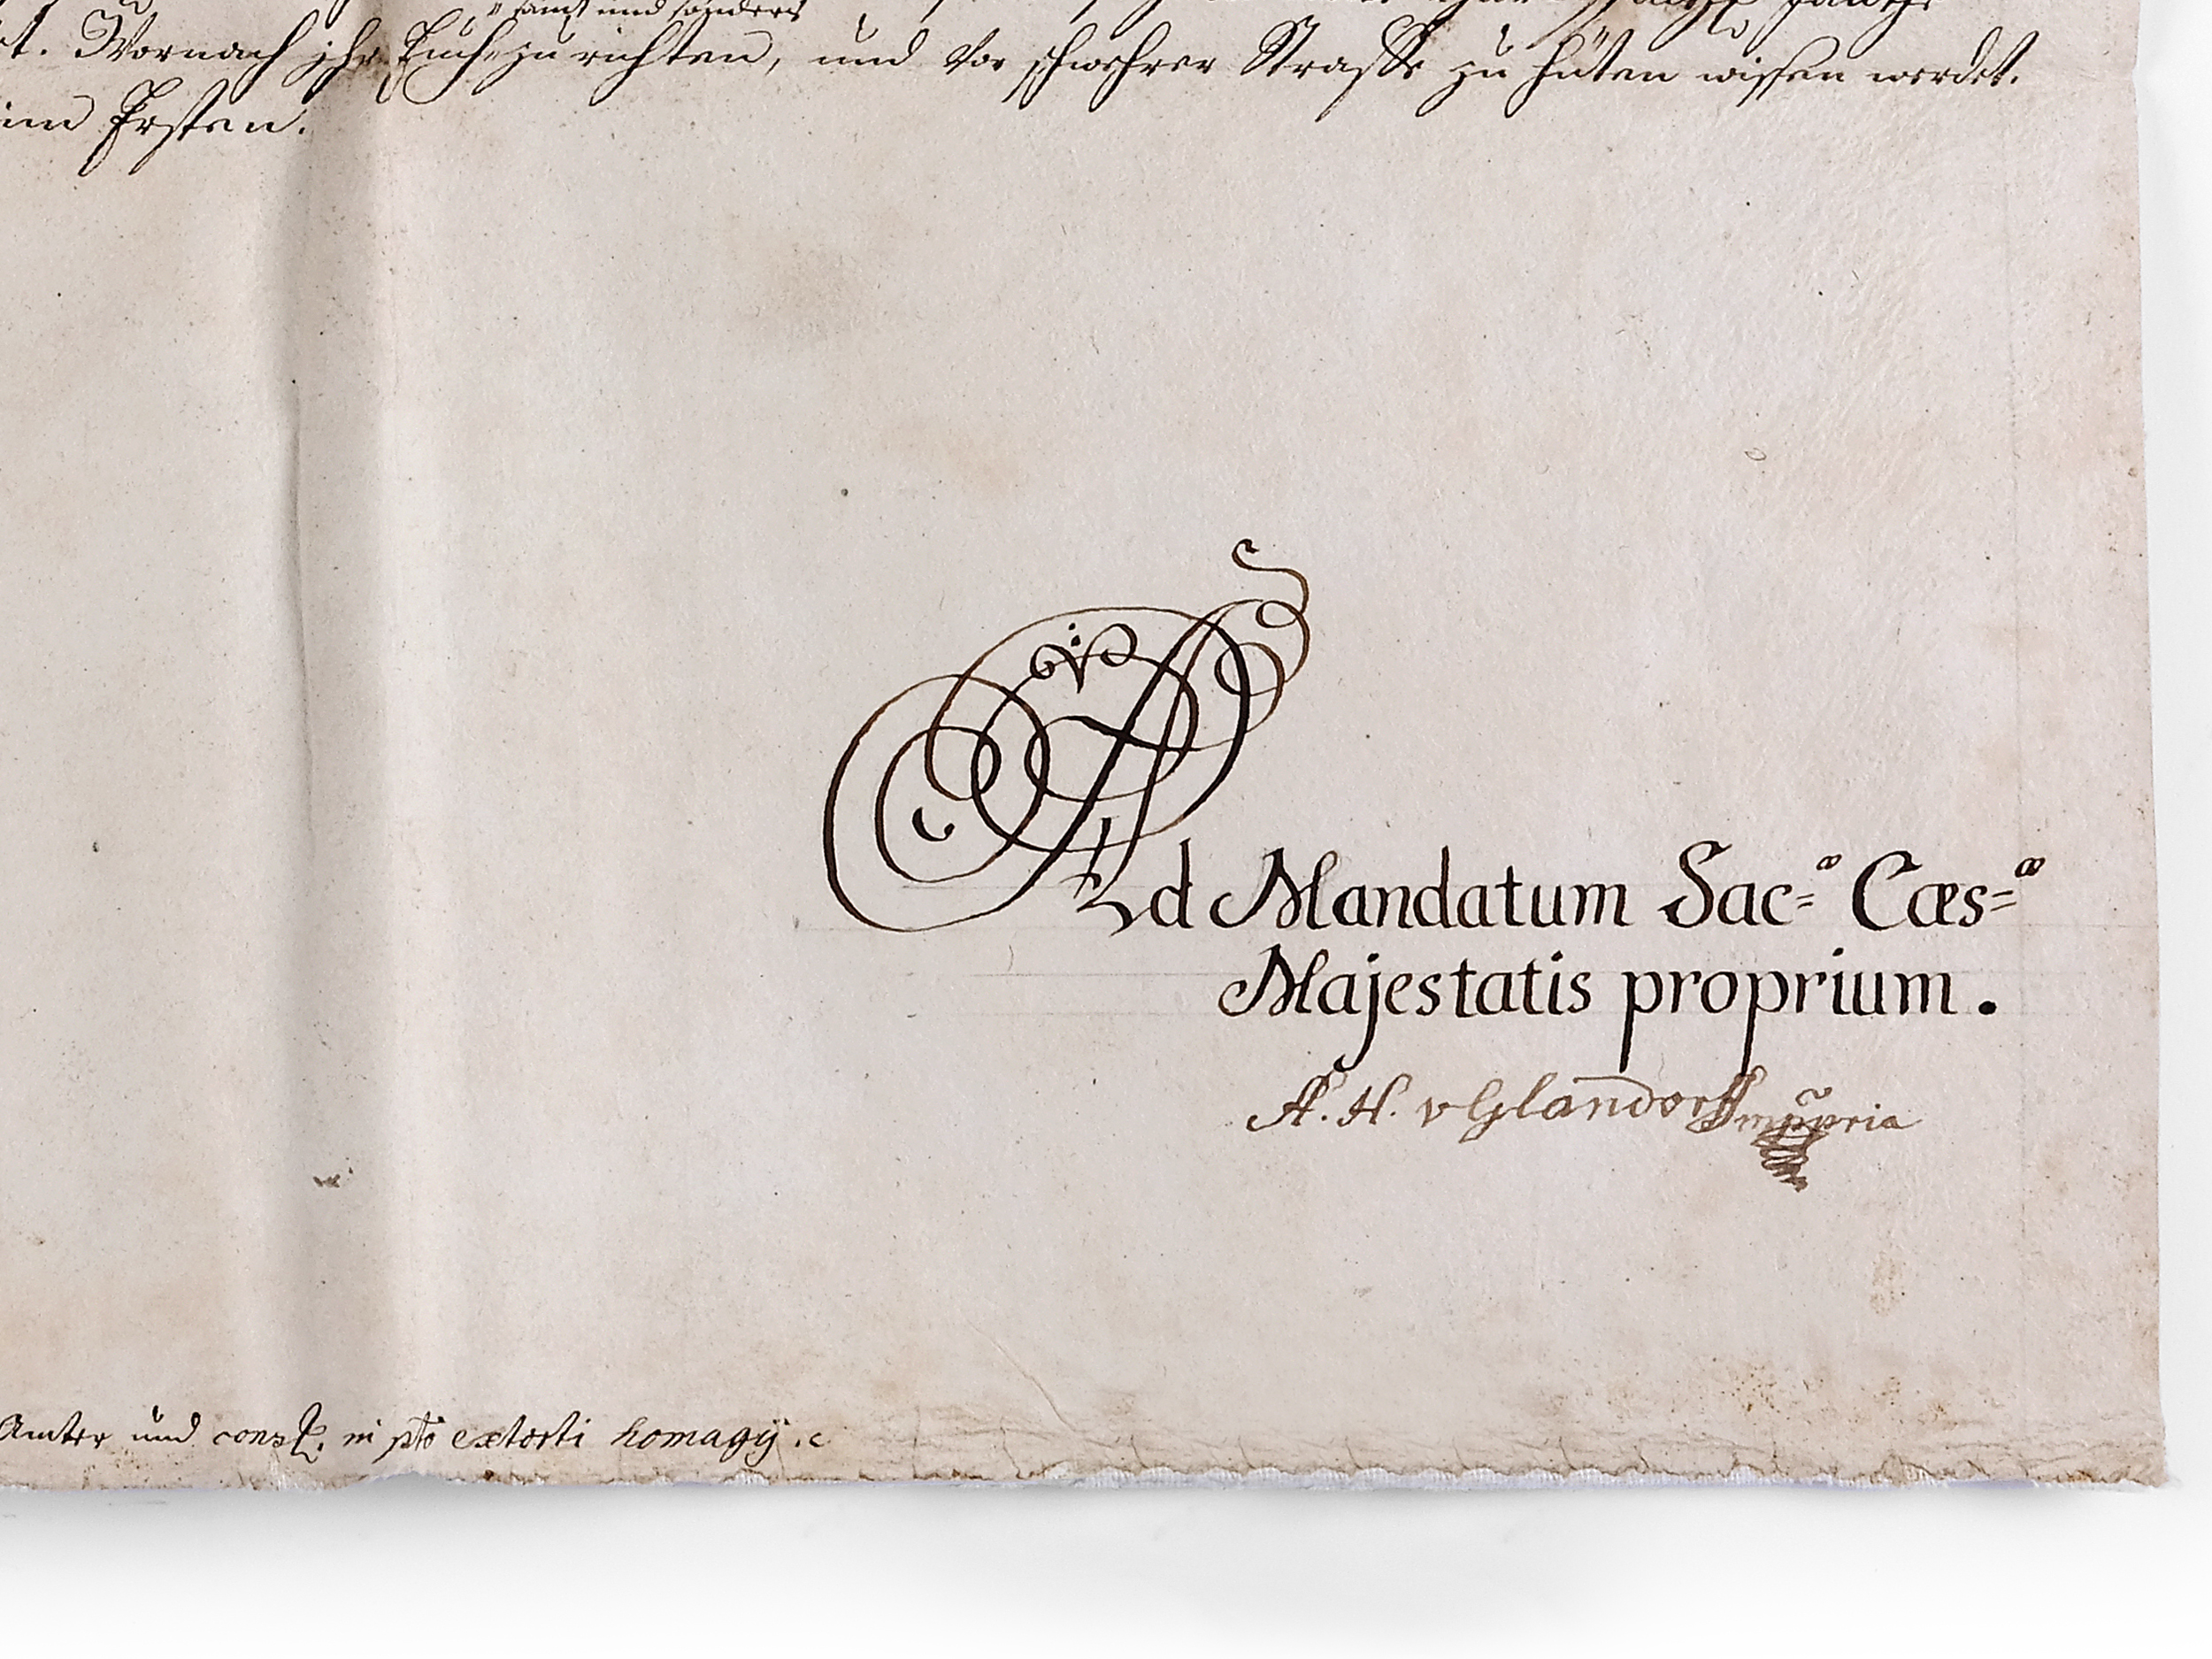 samt und sonders
t. Wornach ihr Euch zu richten, und vor schwehrer Straffe zu hüten wissen werdet.
im Ersten.
Ad Mandatum Sac=ᵃᵉ Cæs=ᵃᵉ
Majestatis proprium.
A. H. v Glandorff mppria
Amter und cons. in pto extorti homagÿ.c